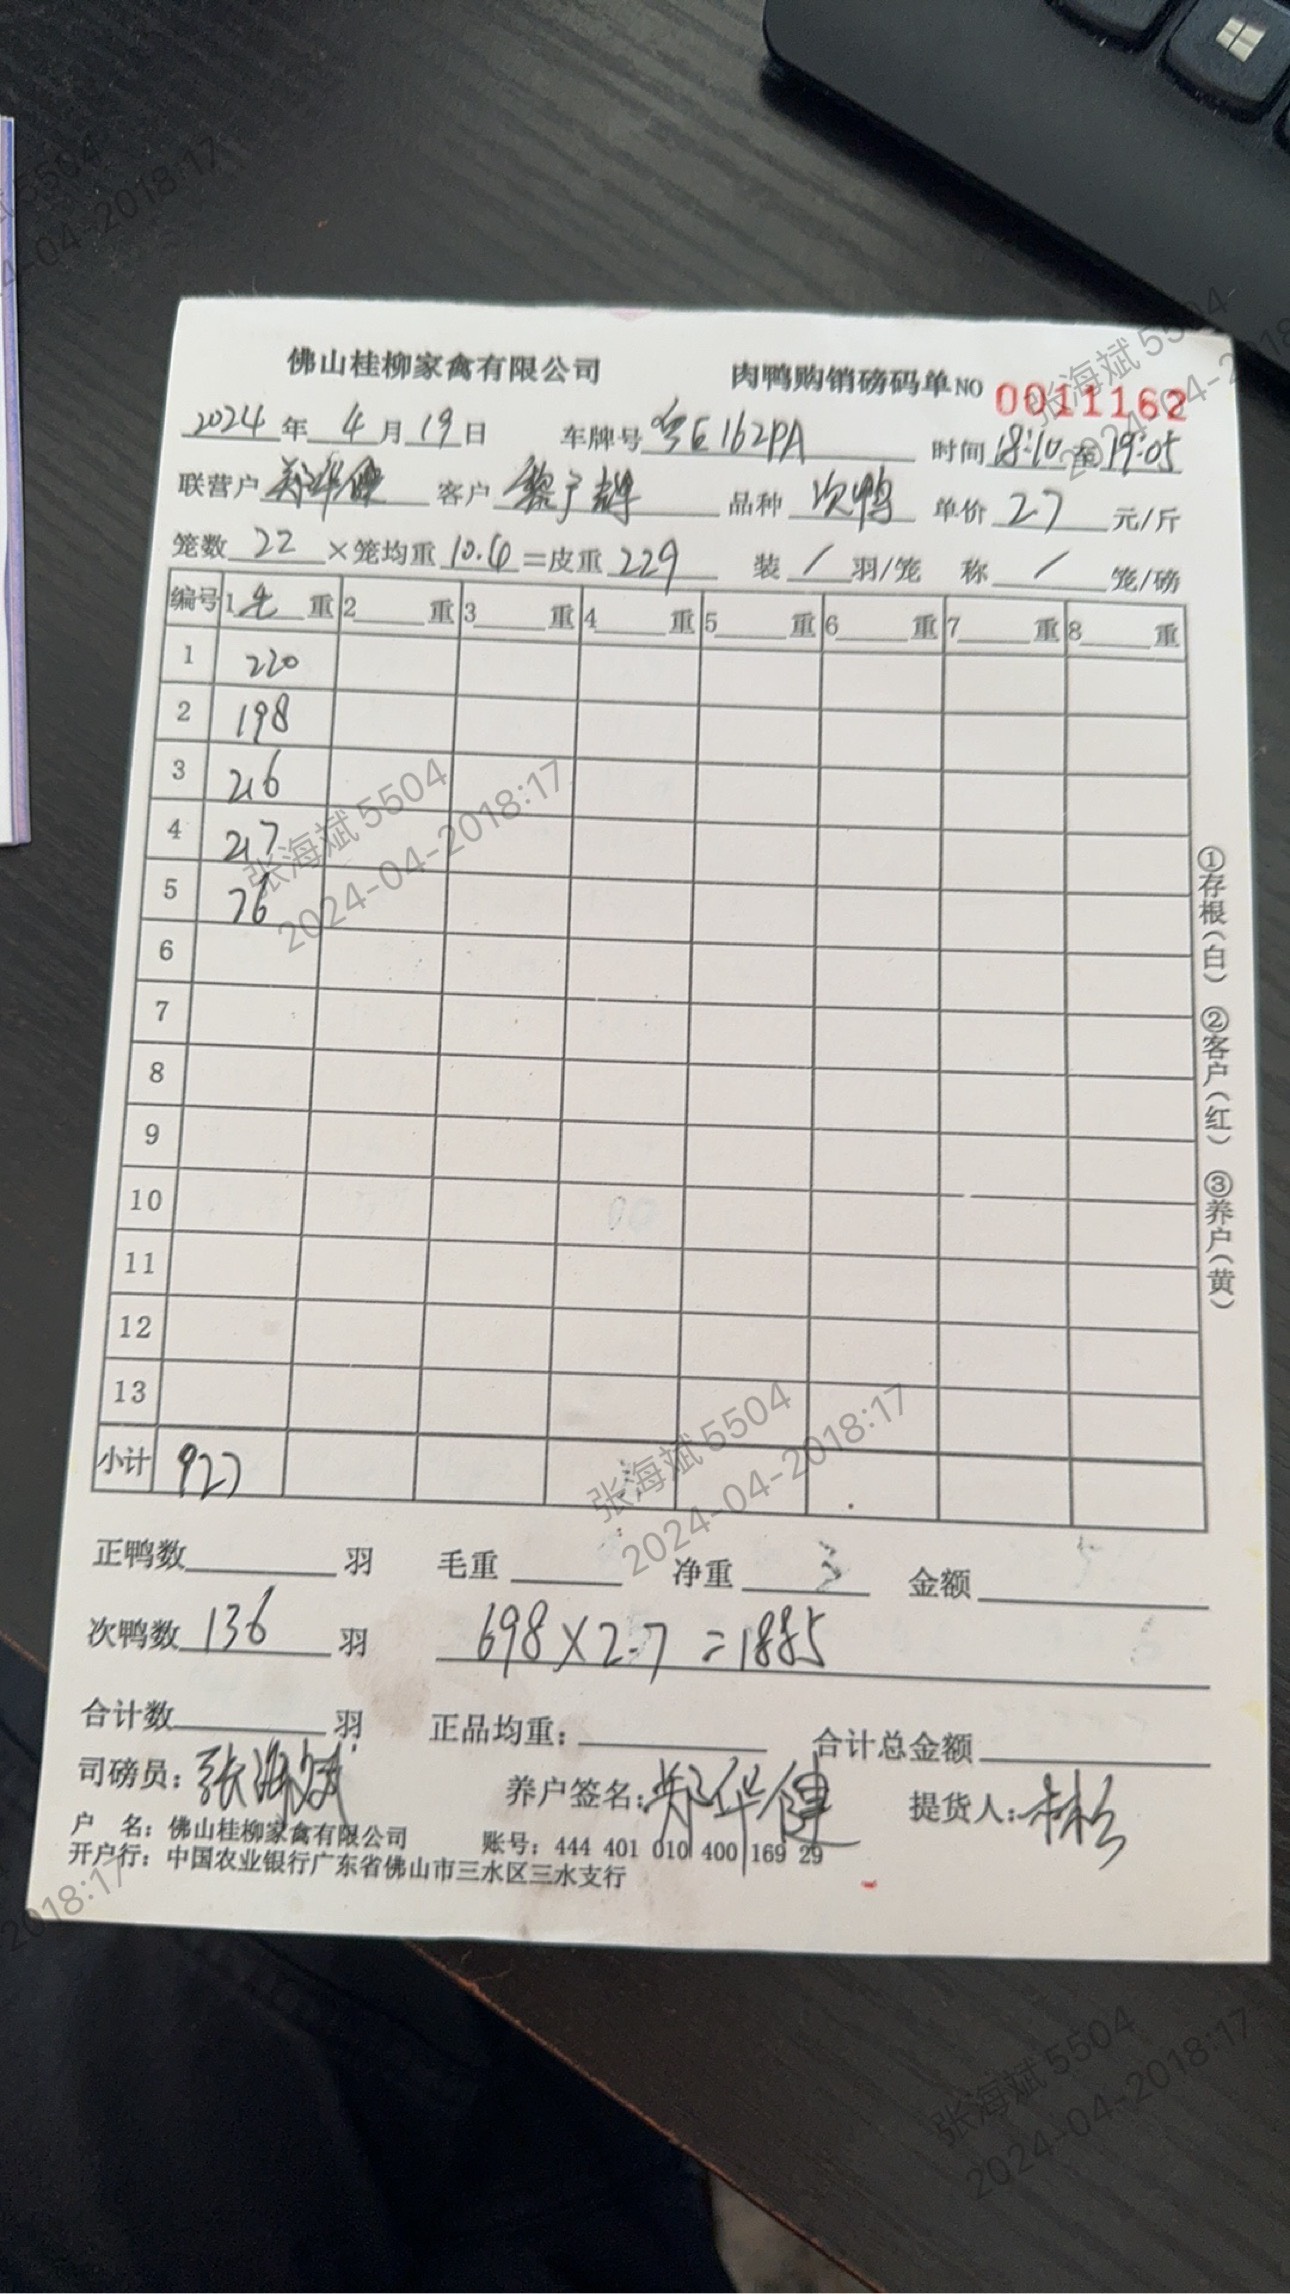 佛山桂柳家禽有限公司 肉鸭购销磅码单 NO 0011162
2024 年 4 月 19 日 车牌号 粤E162PA 时间 18:10 至 19:05
联营户 郑华健 客户 黎广辉 品种 次鸭 单价 2.7 元/斤
笼数 22 ×笼均重 10.4 =皮重 229 装 / 羽/笼 称 / 笼/磅
编号 1 毛 重 2 重 3 重 4 重 5 重 6 重 7 重 8 重
1 220
2 198
3 216
4 217
5 76
6
7
8
9
10
11
12
13
小计 927
①存根(白) ②客户(红) ③养户(黄)
正鸭数 羽 毛重 净重 金额
次鸭数 136 羽 698×2.7=1885
合计数 羽 正品均重: 合计总金额
司磅员: 张海斌 养户签名: 郑华健 提货人:
户 名: 佛山桂柳家禽有限公司 账号: 444 401 010 400 169 29
开户行: 中国农业银行广东省佛山市三水区三水支行
张海斌 5504
2024-04-20 18:17
张海斌 5504
2024-04-20 18:17
张海斌 5504
2024-04-20 18:17
张海斌 5504
2024-04-20 18:17